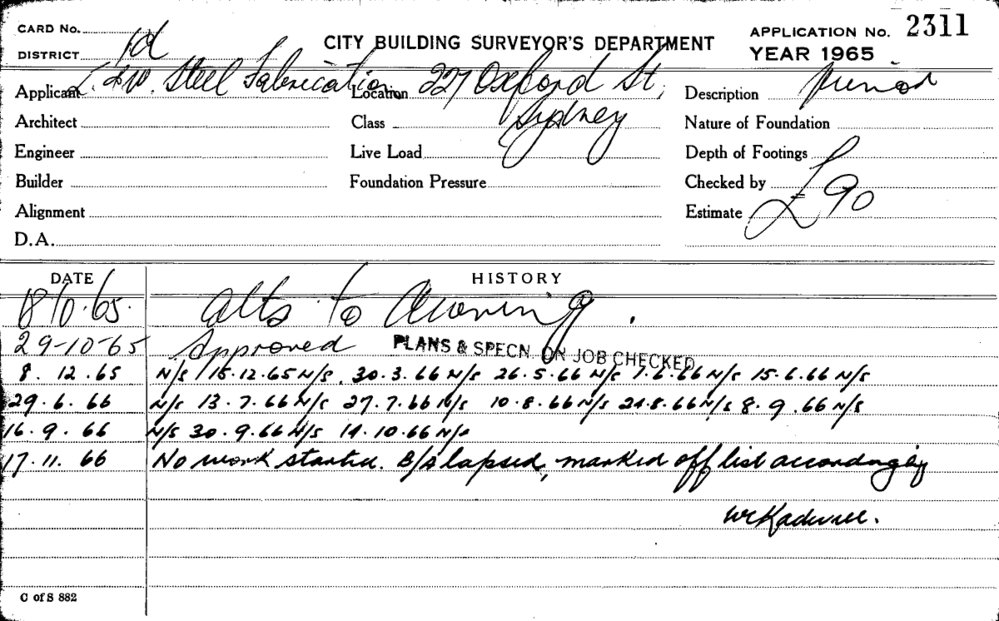 CARD No.
APPLICATION No. 2311
DISTRICT 1d CITY BUILDING SURVEYOR'S DEPARTMENT YEAR 1965
Applicant L. & W. Steel Fabrication Location 227 Oxford St, Sydney Description minor
Architect Class Nature of Foundation
Engineer Live Load Depth of Footings
Builder Foundation Pressure Checked by
Alignment Estimate £90
D.A.
DATE HISTORY
18/10.65. Alts to Awning.
29-10-65 Approved PLANS & SPECN. ON JOB CHECKED
8.12.65 N/S 15.12.65 N/S 30.3.66 N/S 26.5.66 N/S 1.6.66 N/S 15.6.66 N/S
29.6.66 N/S 13.7.66 N/S 27.7.66 N/S 10.8.66 N/S 24.8.66 N/S 8.9.66 N/S
16.9.66 N/S 30.9.66 N/S 14.10.66 N/S
17.11.66 No work started. B/A lapsed, marked off list accordingly
C of S 882